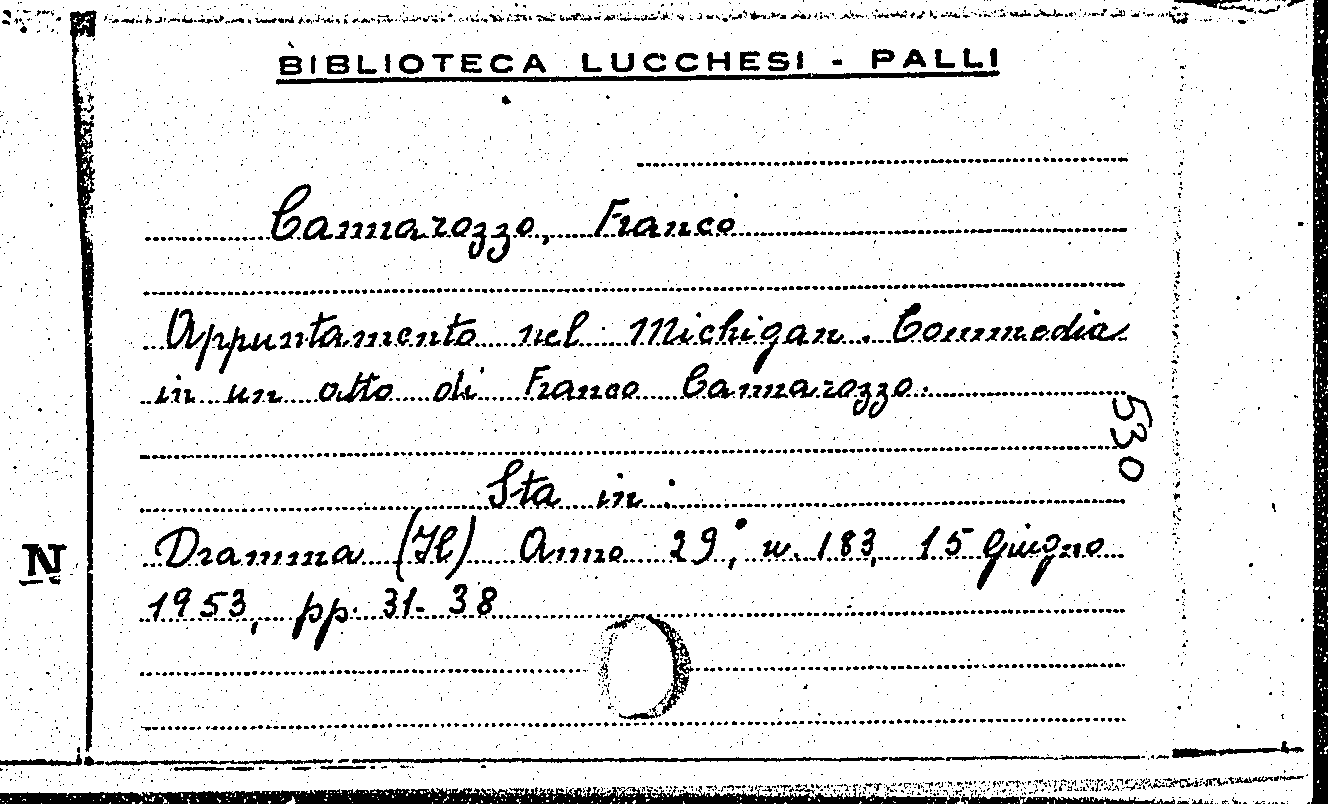 BIBLIOTECA LUCCHESI - PALLI
Cannarozzo, Franco
Appuntamento nel Michigan. Commedia
in un atto di Franco Cannarozzo.
530
Sta in:
Dramma (Il) Anno 29°, n. 183, 15 Giugno
N
1953, pp. 31-38